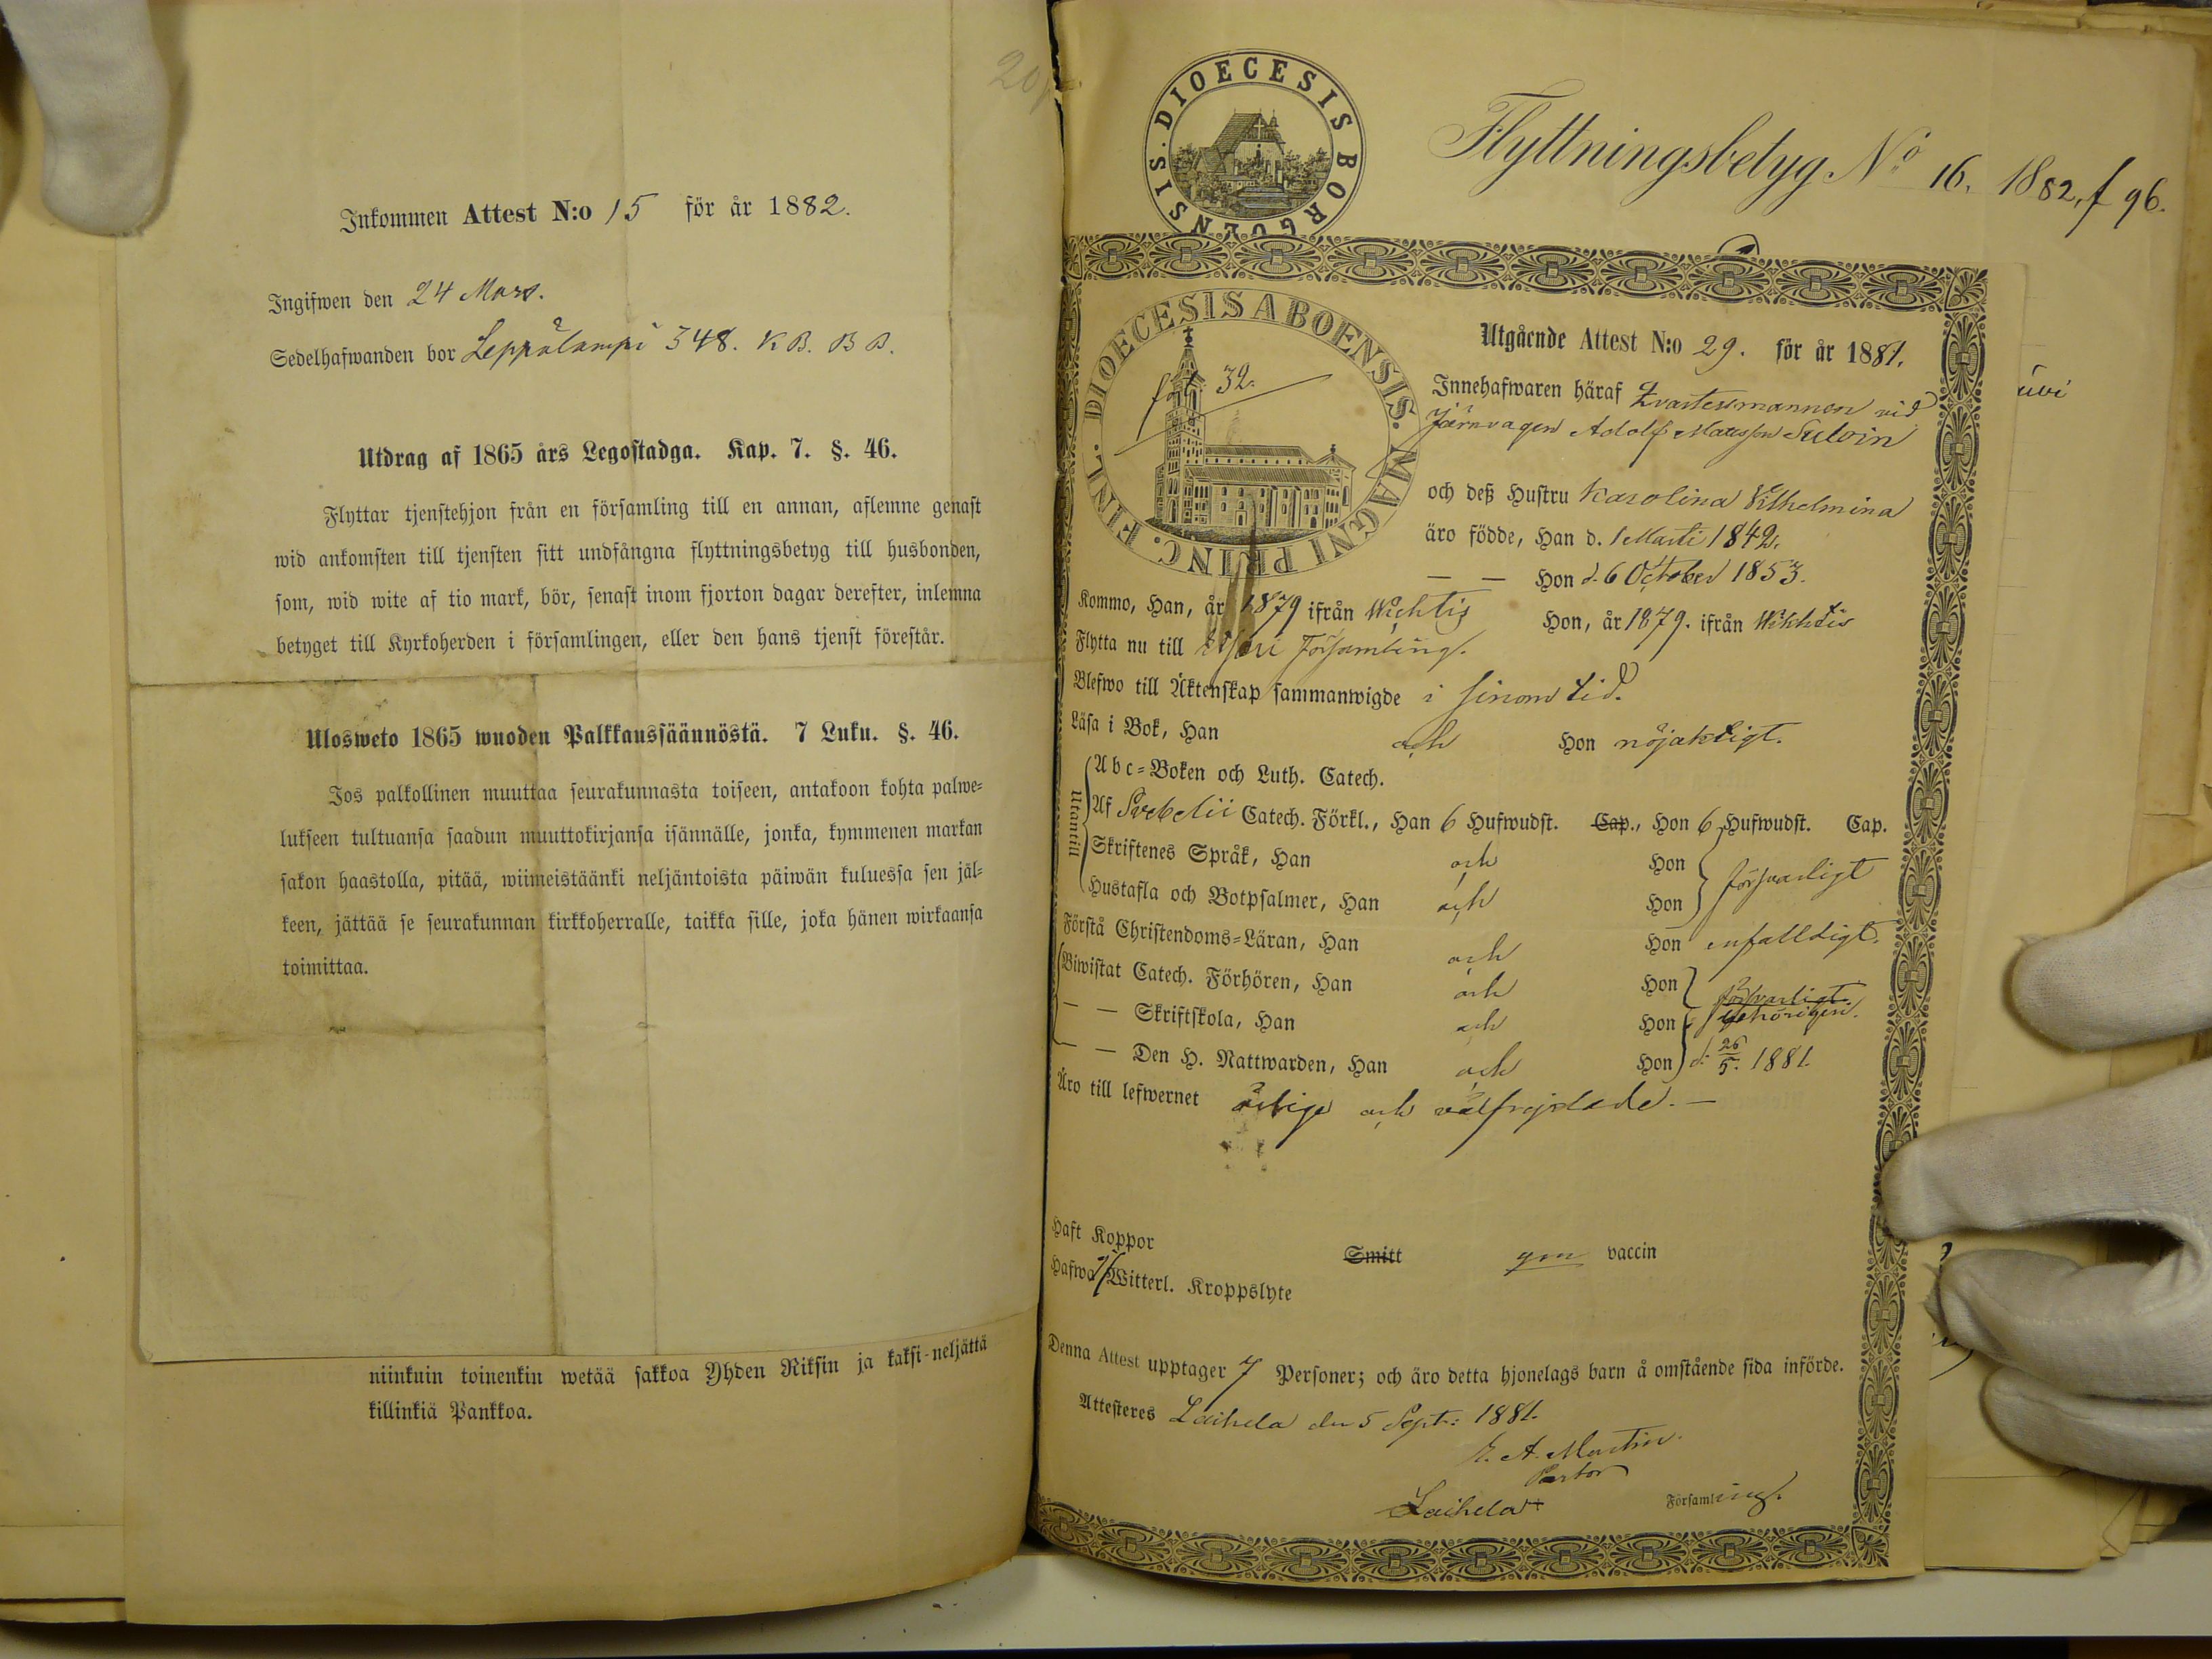 Inkommen Attest N:o 15 för år 1882.
Ingifwen den 24 Mars.
Sedelhafwanden bor Leppälampi 348. K B. B B.
Utdrag af 1865 års Legostadga. Kap. 7. §. 46.
Flyttar tjenstehjon från en församling till en annan, aflemne genast
wid ankomsten till tjensten sitt undfångna flyttningsbetyg till husbonden,
som, wid wite af tio mark, bör, senast inom fjorton dagar derefter, inlemna
betyget till Kyrkoherden i församlingen, eller den hans tjenst förestår.
Ulosweto 1865 wuoden Palkkaussäännöstä. 7 Luku. §. 46.
Jos palkollinen muuttaa seurakunnasta toiseen, antakoon kohta palwe=
lukseen tultuansa saadun muuttokirjansa isännälle, jonka, kymmenen markan
sakon haastolla, pitää, wiimeistäänki neljäntoista päiwän kuluessa sen jäl=
keen, jättää se seurakunnan kirkkoherralle, taikka sille, joka hänen wirkaansa
toimittaa.
niinkuin toinenkin wetää sakkoa Yhden Riksin ja kaksi-neljättä
killinkiä Pankkoa.
DIOECESIS BORGOENSIS.
Flyttningsbetyg No 16. 1882, f 96.
DIOECESIS ABOENSIS. MAGNI PRINC. FINL.
fol. 32.
Utgående Attest N:o 29. för år 1881.
Innehafwaren häraf Qvartersmannen vid
Järnvägen Adolf Matsson Sulvin
och deß Hustru Karolina Vilhelmina
äro födde, Han d. 1 Marti 1842.
— — Hon d. 6 October 1853.
Kommo, Han, år 1879 ifrån Wichtis Hon, år 1879. ifrån Wikhtis
Flytta nu till Församling.
Blefwo till Äktenskap sammanwigde i sinom tid.
Läsa i Bok, Han och Hon nöjaktigt.
Utantill
Abc=Boken och Luth. Catech.
Af Svebelii Catech. Förkl., Han 6 Hufwudst. Cap., Hon 6 Hufwudst. Cap.
Skriftenes Språk, Han och Hon
Hustafla och Botpsalmer, Han och Hon försvarligt
Förstå Christendoms=Läran, Han och Hon enfalldigt.
Biwistat Catech. Förhören, Han och Hon försvarligt.
— — Skriftskola, Han och Hon behörigen.
— — Den H. Nattwarden, Han och Hon d. 26/5. 1881.
Äro till lefwernet ärlige och välfrejdade. —
Haft Koppor Smitt gm vaccin
Hafwa Witterl. Kroppslyte
Denna Attest upptager 7 Personer; och äro detta hjonelags barn å omstående sida införde.
Attesteres Laihela den 5 Sept: 1881.
A. Martin.
Pastor
Laihela Församling.